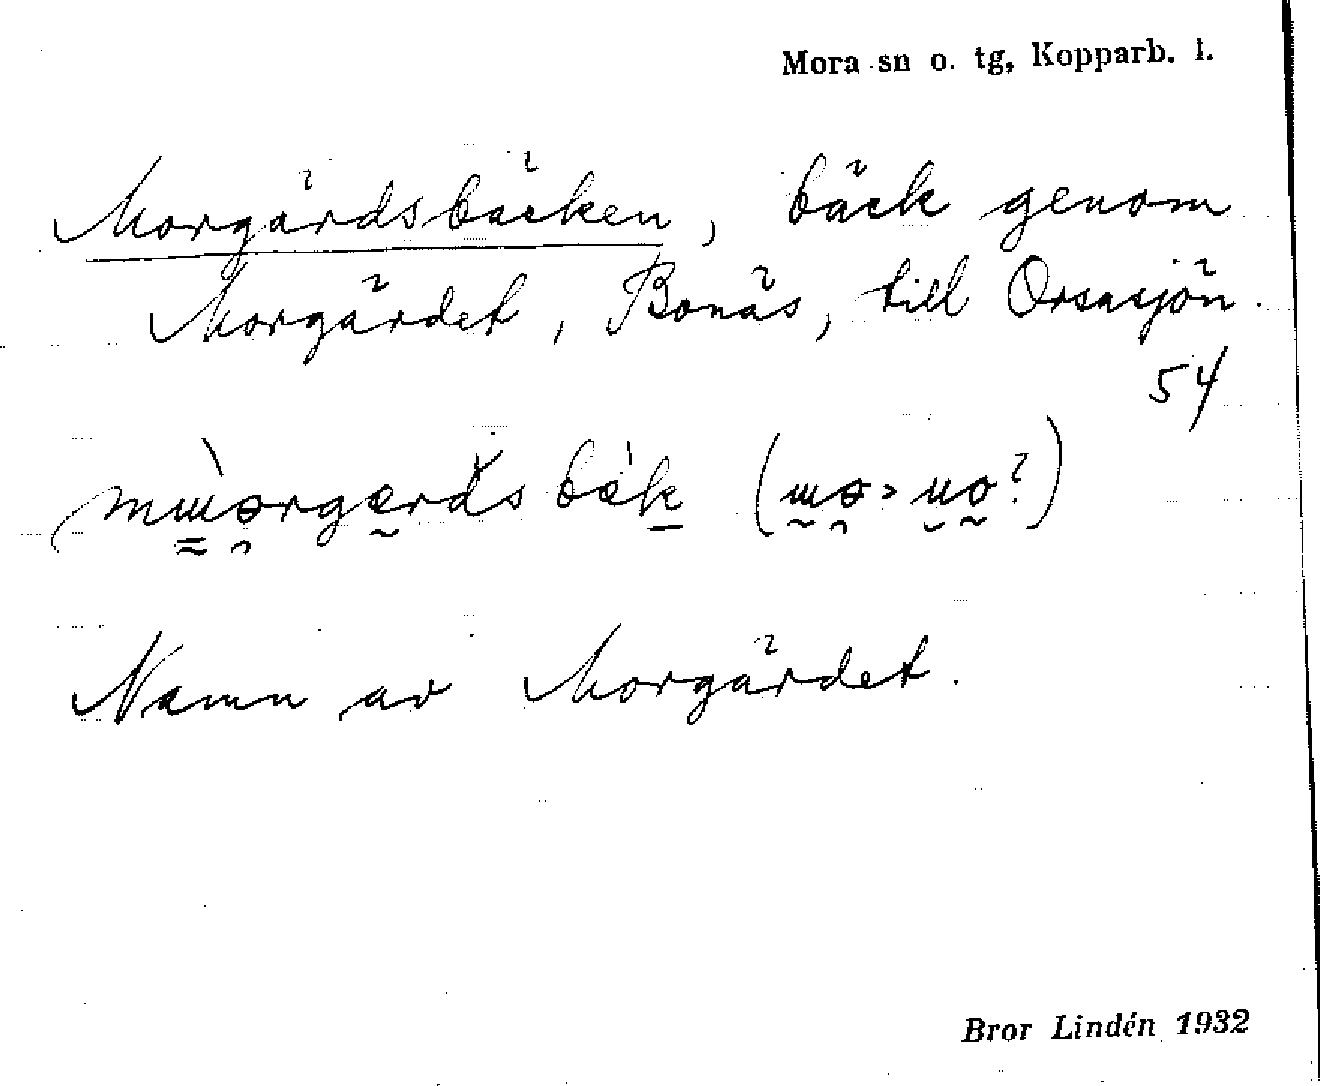 Mora sn o. tg, Kopparb. l.
Morgärdsbäcken, bäck genom
Morgärdet, Bonäs, till Orsasjön.
54
Namn av Morgärdet.
Bror Lindén 1932